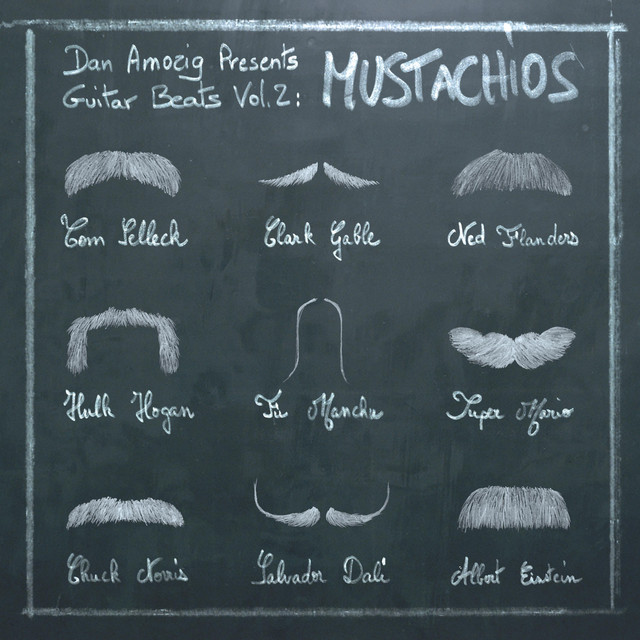 Dan Amozig Presents
Guitar Beats Vol.2:
MUSTACHiOS
Tom Selleck
Clark Gable
Ned Flanders
Hulk Hogan
Fu Manchu
Super Mario
Chuck Norris
Salvador Dali
Albert Einstein